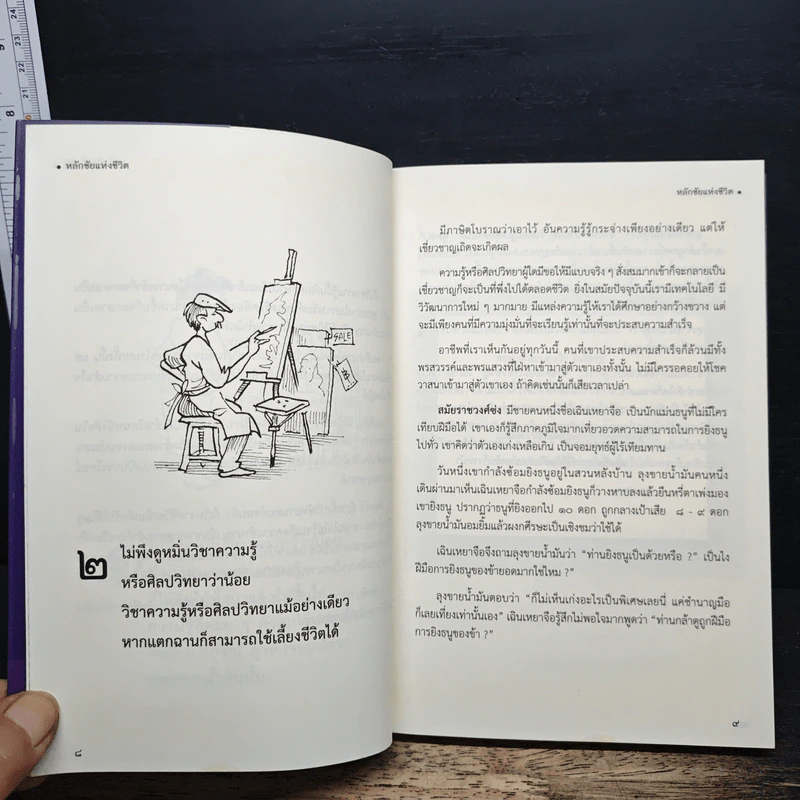 • หลักชัยแห่งชีวิต
SALE
๒
ไม่พึงดูหมิ่นวิชาความรู้
หรือศิลปวิทยาว่าน้อย
วิชาความรู้หรือศิลปวิทยาแม้อย่างเดียว
หากแตกฉานก็สามารถใช้เลี้ยงชีวิตได้
๘
หลักชัยแห่งชีวิต •
มีภาษิตโบราณว่าเอาไว้ อันความรู้รู้กระจ่างเพียงอย่างเดียว แต่ให้
เชี่ยวชาญเถิดจะเกิดผล
ความรู้หรือศิลปวิทยาผู้ใดมีขอให้มีแบบจริง ๆ สั่งสมมากเข้าก็จะกลายเป็น
เชี่ยวชาญก็จะเป็นที่พึ่งไปได้ตลอดชีวิต ยิ่งในสมัยปัจจุบันนี้เรามีเทคโนโลยี มี
วิวัฒนาการใหม่ ๆ มากมาย มีแหล่งความรู้ให้เราได้ศึกษาอย่างกว้างขวาง แต่
จะมีเพียงคนที่มีความมุ่งมันที่จะเรียนรู้เท่านั้นที่จะประสบความสำเร็จ
อาชีพที่เราเห็นกันอยู่ทุกวันนี้ คนที่เขาประสบความสำเร็จก็ล้วนมีทั้ง
พรสวรรค์และพรแสวงที่ใฝ่หาเข้ามาสู่ตัวเขาเองทั้งนั้น ไม่มีใครรอคอยให้โชค
วาสนาเข้ามาสู่ตัวเขาเอง ถ้าคิดเช่นนั้นก็เสียเวลาเปล่า
สมัยราชวงศ์ซ่ง มีชายคนหนึ่งชื่อเฉินเหยาจือ เป็นนักแม่นธนูที่ไม่มีใคร
เทียบฝีมือได้ เขาเองก็รู้สึกภาคภูมิใจมากเที่ยวอวดความสามารถในการยิงธนู
ไปทั่ว เขาคิดว่าตัวเองเก่งเหลือเกิน เป็นจอมยุทธ์ผู้ไร้เทียมทาน
วันหนึ่งเขากำลังซ้อมยิงธนูอยู่ในสวนหลังบ้าน ลุงขายน้ำมันคนหนึ่ง
เดินผ่านมาเห็นเฉินเหยาจือกำลังซ้อมยิงธนูก็วางหาบลงแล้วยืนหรี่ตาเพ่งมอง
เขายิงธนู ปรากฏว่าธนูที่ยิงออกไป ๑๐ ดอก ถูกกลางเป้าเสีย ๘ - ๙ ดอก
ลุงขายน้ำมันอมยิ้มแล้วผงกศีรษะเป็นเชิงชมว่าใช้ได้
เฉินเหยาจือจึงถามลุงขายน้ำมันว่า “ท่านยิงธนูเป็นด้วยหรือ ?” เป็นไง
ฝีมือการยิงธนูของข้ายอดมากใช่ไหม ?”
ลุงขายน้ำมันตอบว่า “ก็ไม่เห็นเก่งอะไรเป็นพิเศษเลยนี่ แค่ชำนาญมือ
ก็เลยเที่ยงเท่านั้นเอง” เฉินเหยาจือรู้สึกไม่พอใจมากพูดว่า “ท่านกล้าดูถูกฝีมือ
การยิงธนูของข้า ?”
๙